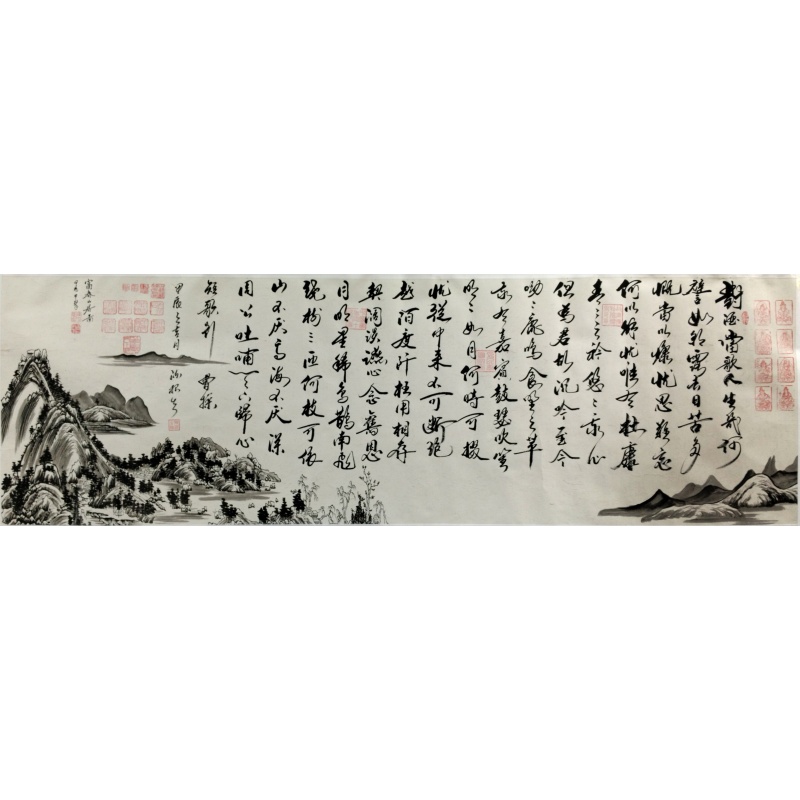 對酒當歌人生幾何
譬如朝露去日苦多
慨當以慷忧思難忘
何以解忧唯有杜康
青々子衿悠々我心
但為君故沉吟至今
呦々鹿鳴食野之苹
我有嘉賓鼓瑟吹笙
明々如月何時可掇
忧從中来不可断絕
越陌度阡枉用相存
契阔談讌心念舊恩
月明星稀烏鵲南飛
繞樹三匝何枝可依
山不厌高海不厌深
周公吐哺天下歸心
短歌行 曹操
甲辰之春月
富春山居图